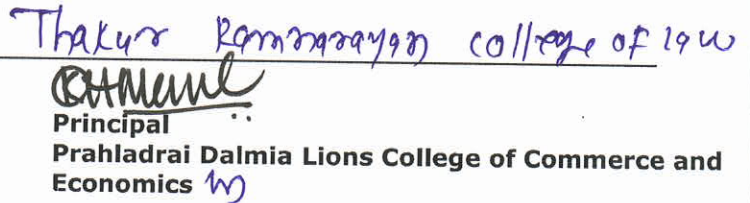 Thakur Ramnarayan college of law
Principal
Prahladrai Dalmia Lions College of Commerce and
Economics